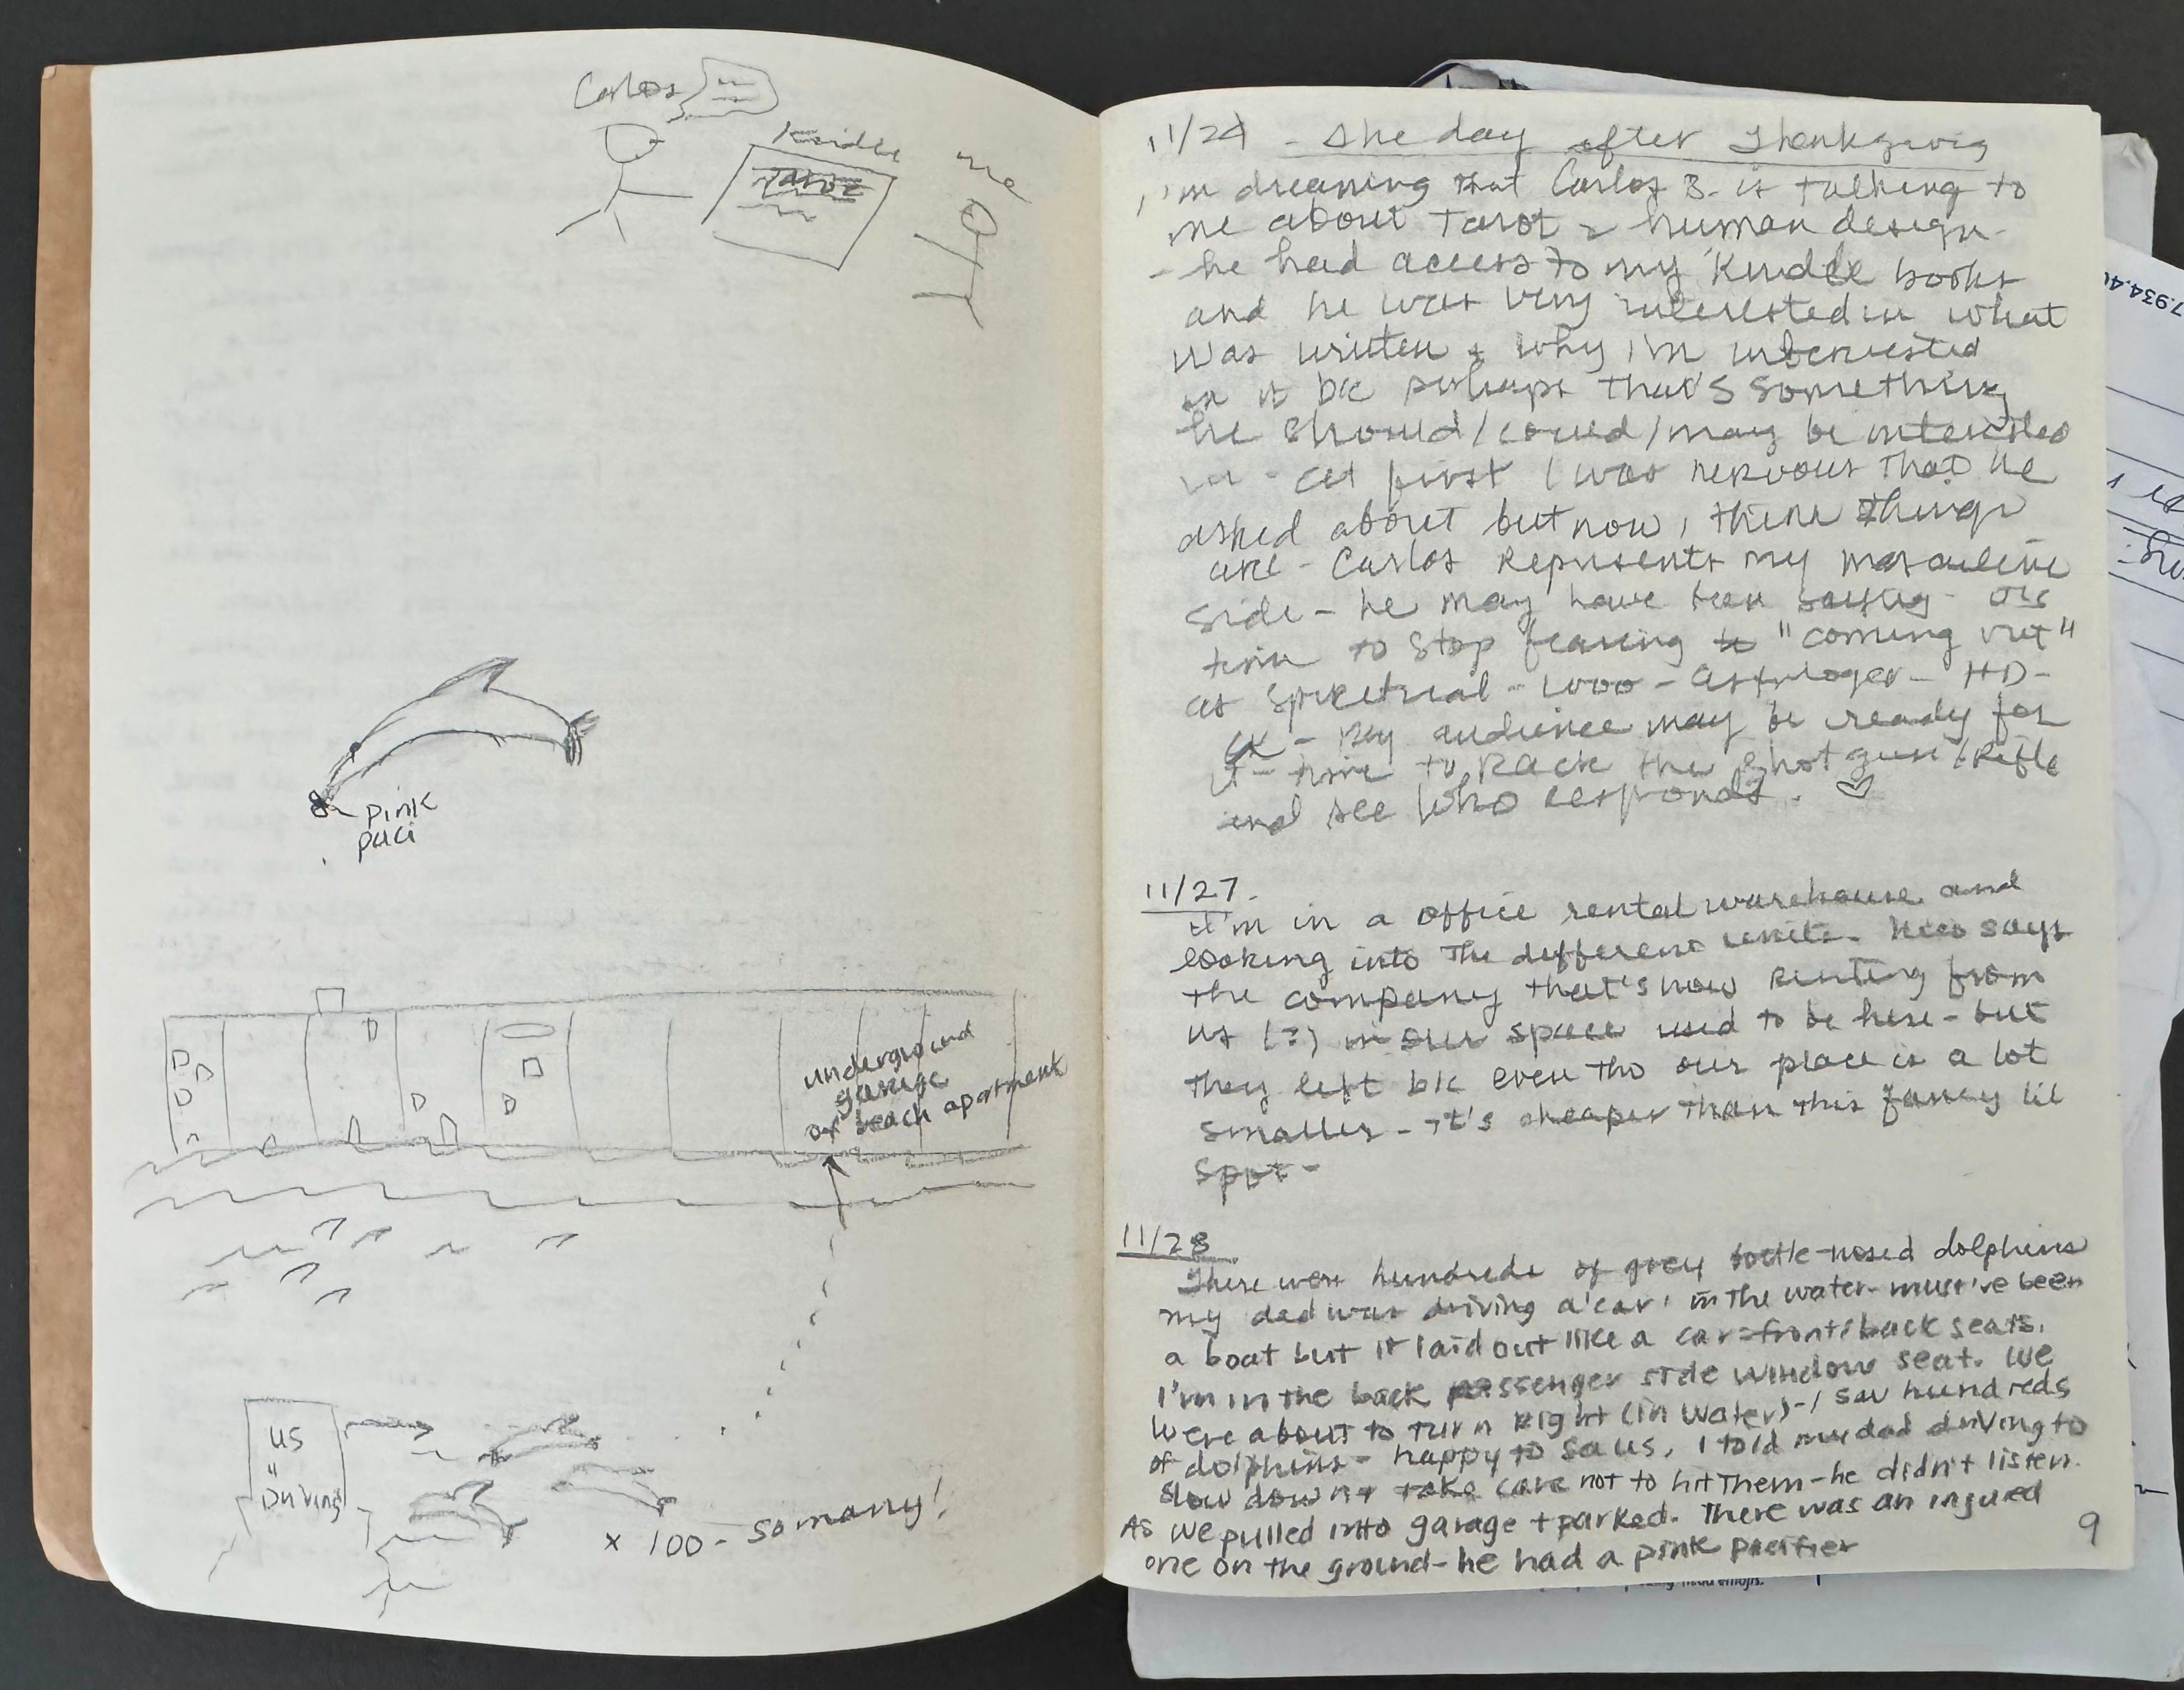 Carlos
Kindle
me
Tarot
pink
paci
underground
garage
of beach apartment
us
Driving
x 100 - so many!
11/24 - The day after Thanksgivig
I'm dreaming that Carlos B. is talking to
me about Tarot & human design -
- he had access to my Kindle books
and he was very interested in what
was written & why I'm interested
in it bc perhaps that's something
he should/could/may be interested
in - at first I was nervous that he
asked about but now, these things
are - Carlos Represents my masculine
side - he may have been saying - its
time to stop fearing to "coming out"
as spiritual - woo - astrologer - HD -
GK - my audience may be ready for
it - time to rack the shotgun/Rifle
and see who responds. ♡
11/27.
I'm in a office rental warehouse and
looking into the different units. says
the company that's now renting from
us (?) in our space used to be here - but
they left b/c even tho our place is a lot
smaller - it's cheaper than this fancy lil
spot -
11/28
There were hundreds of grey bottle-nosed dolphins
my dad was driving a 'car' in the water - must've been
a boat but it laid out like a car = front/back seats.
I'm in the back passenger side window seat. We
were about to turn right (in water) - I saw hundreds
of dolphins - happy to see us. I told my dad driving to
slow down + take care not to hit them - he didn't listen.
As we pulled into garage + parked. There was an injured
one on the ground - he had a pink pacifier
9